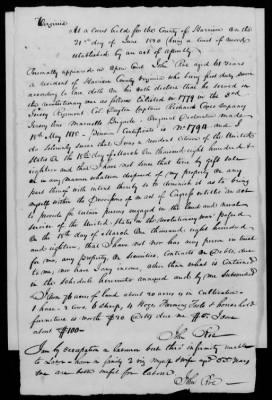 Virginia
At a Court held for the County of Harrison on the
21st day of June 1820 (being a Court of record
established by an act of assembly
Personally appeared in Open Court John Poe aged 61 years
a resident of Harrison County Virginia who being first duly sworn
according to Law doth on his oath declare that he served in
the revolutionary war as follows Enlisted in 1779 in the 3rd
Jersey Regiment Col Dayton Captain Richard Coxes Company
Jersey line Maxwells Brigade. Original Declaration made
15th May 1818 – Pension Certificate is No 1794 and I
do solemnly swear that I was a resident Citizen of the United
States on the 18th day of March One thousand eight hundred &
eighteen and that I have not since that time by gift sale
or in any manner whatever disposed of my property or any
part thereof with intent thereby so to diminish it as to bring
myself within the provisions of an act of Congress entitled an act
to provide for certain persons engaged in the land and naval
service of the United States in the revolutionary war passed
on the 18th day of March One thousand eight hundred
and eighteen, that I have not nor has any person in trust
for me, any property or securities, Contracts or Debts due
to me, nor have I any income other than what is contained
in the schedule hereunto annexed and by me subscribed
76 acres of land about 20 acres is in cultivation
1 horse – 2 cows, 6 sheep, 4 Hogs Farming Tools & household
furniture is worth $20 Debts due me $65 I owe
about $100 –
John Poe
I am by occupation a Labourer but thro' infirmity unable
to Labor – have a family 2 viz myself & wife aged 60 years
we are both unfit for labour
John Poe